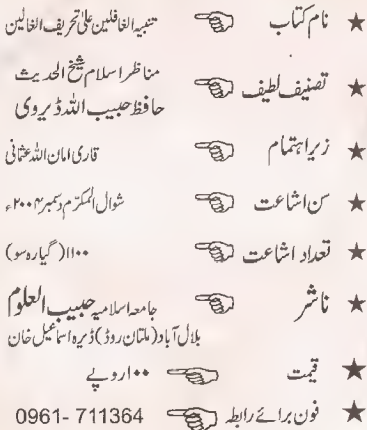 ★ نام کتاب ☜ تنبیہ الغافلین علیٰ تحریف الغالین
★ تصنیف لطیف ☜ مناظر اسلام شیخ الحدیث
حافظ حبیب اللہ ڈیروی
★ زیر اہتمام ☜ قاری امان اللہ عثمانی
★ سن اشاعت ☜ شوال المکرم دسمبر ۲۰۰۴ء
★ تعداد اشاعت ☜ ۱۱۰۰ (گیارہ سو)
★ ناشر ☜ جامعہ اسلامیہ حبیب العلوم
بلال آباد (ملتان روڈ) ڈیرہ اسماعیل خان
★ قیمت ☜ ۱۰۰ روپے
★ فون برائے رابطہ ☜ 0961- 711364